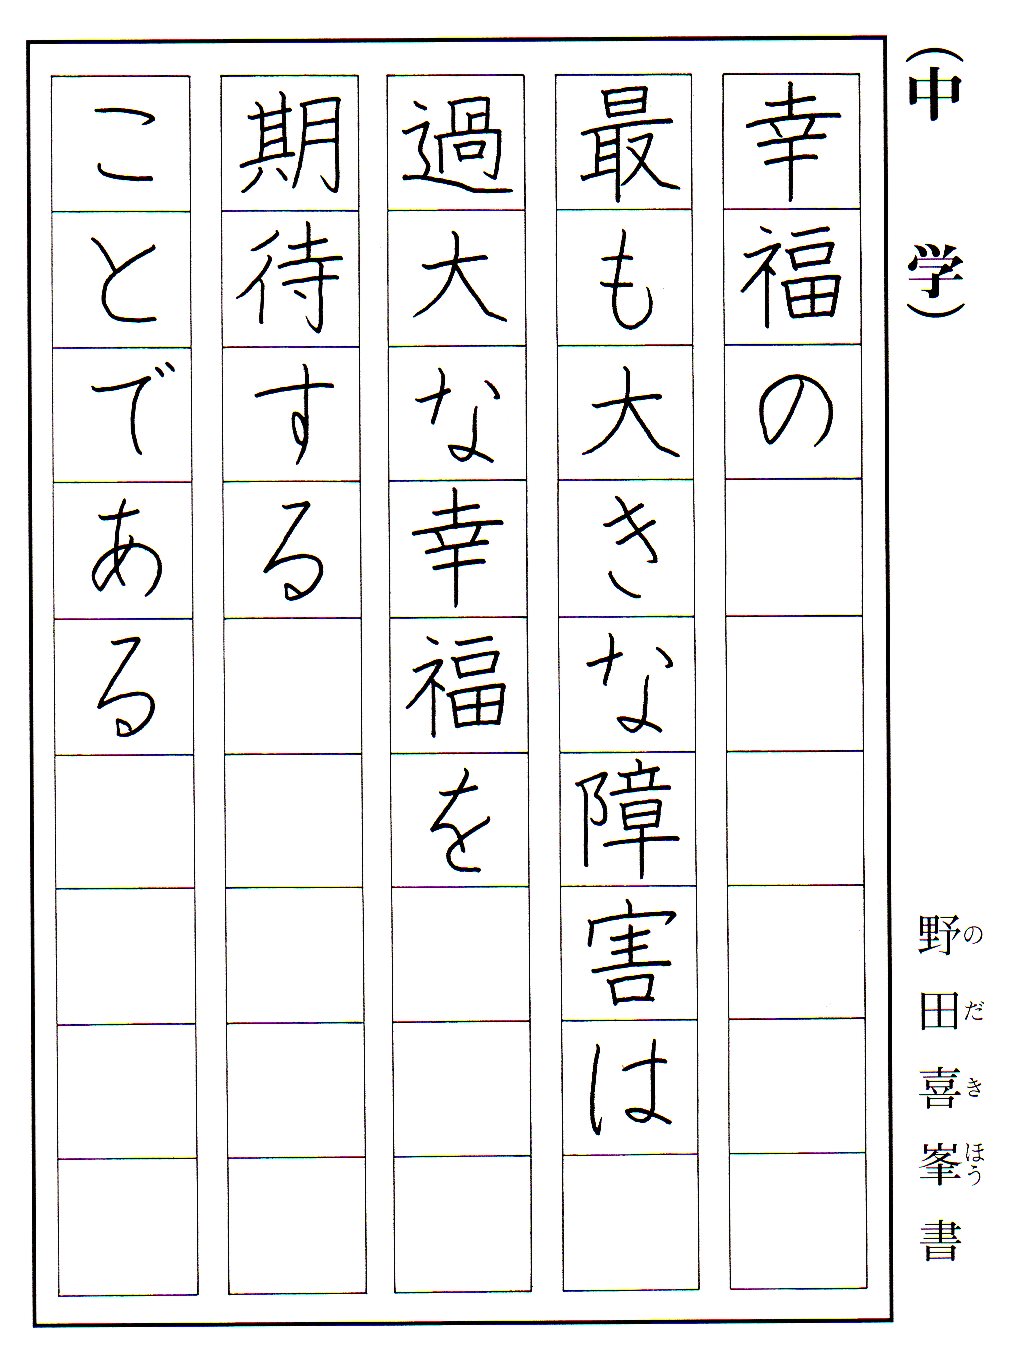 （中学）
野田喜峯書
のだきほう
幸福の
最も大きな障害は
過大な幸福を
期待する
ことである